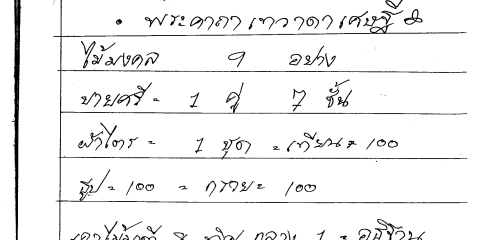 • พระคาถา เทวาดา เศรษฐี
ไม้มงคล 9 อย่าง
บายศรี = 1 คู่ 7 ชั้น
ผ้าไตร = 1 ชุด = เทียน = 100
ธูป = 100 = ทราย = 100